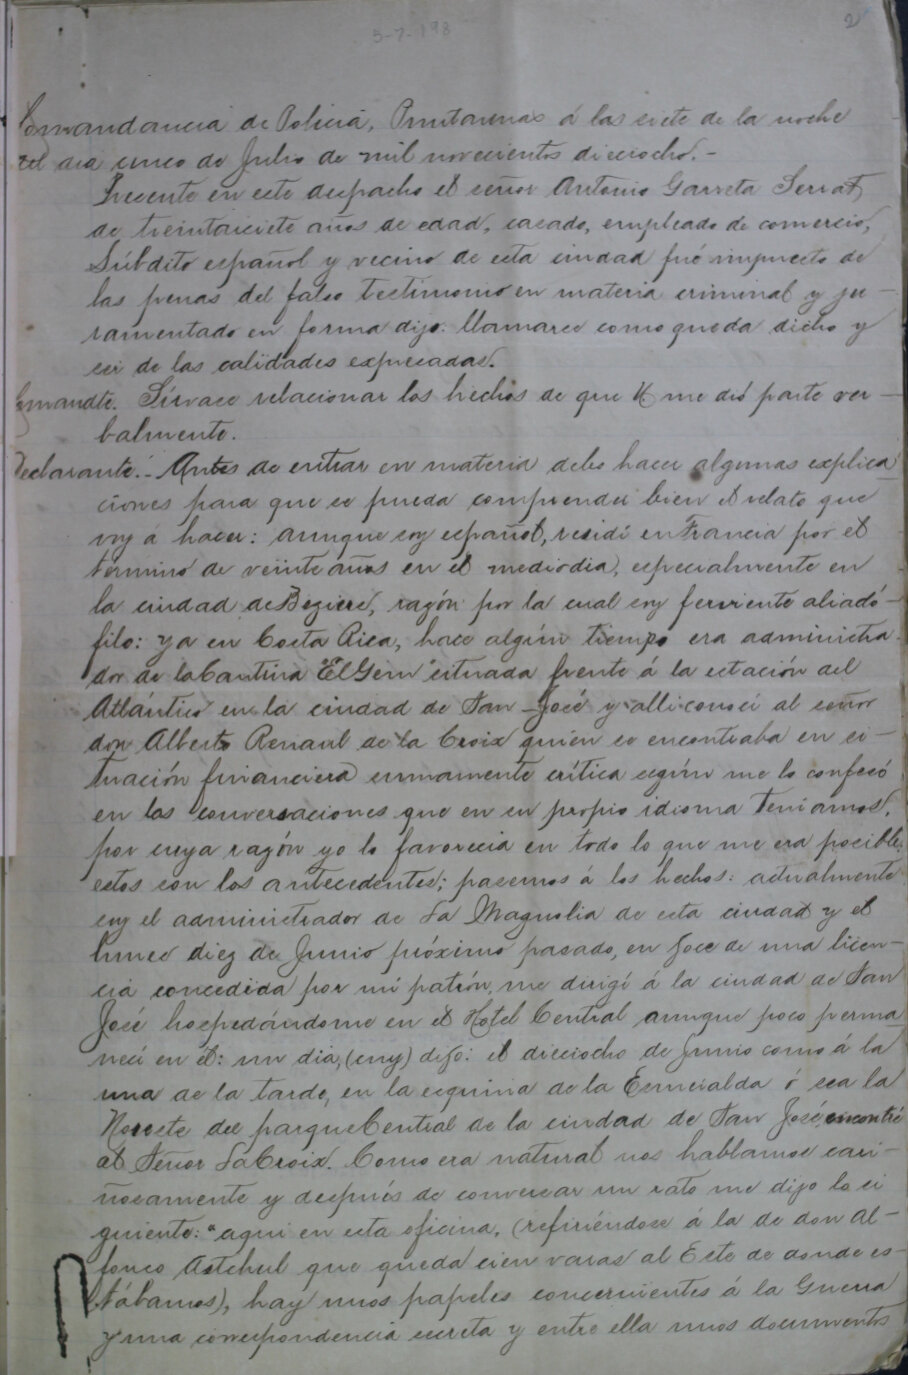 5-7-198
2
Comandancia de Policia, Puntarenas á las siete de la noche
del dia cinco de Julio de mil novecientos dieciocho.-
Presente en este despacho el señor Antonio Garreta Serrat,
de treintaisiete años de edad, casado, empleado de comercio,
Súbdito español y vecino de esta ciudad fué impuesto de
las penas del falso testimonio en materia criminal y ju-
ramentado en forma dijo: llamarse como queda dicho y
ser de las calidades expresadas.
Comandte. Sírvase relacionar los hechos de que U. me dió parte ver-
balmente.
Declarante.- Antes de entrar en materia debo hacer algunas explica
ciones para que se pueda comprender bien el relato que
voy á hacer: aunque soy español, residí en Francia por el
término de veinte años en el mediodia, especialmente en
la ciudad de Beziers, razón por la cual soy ferviente aliadó-
filo: ya en Costa Rica, hace algún tiempo era administra-
dor de la Cantina "El Gem" situada frente á la estación del
Atlántico en la ciudad de San José y alli conocí al señor
don Alberto Renaul de la Croix quien se encontraba en si-
tuación financiera sumamente crítica según me lo confesó
en las conversaciones que en su propio idioma teniamos,
por cuya razón yo lo favorecia en todo lo que me era posible;
estos son los antecedentes; pasemos á los hechos: actualmente
soy el administrador de La Magnolia de esta ciudad y el
lunes diez de Junio próximo pasado, en goce de una licen-
cia concedida por mi patrón, me dirigí á la ciudad de San
José hospedándome en el Hotel Central aunque poco perma
necí en él: un dia, (suy) dijo: el dieciocho de Junio como á la
una de la tarde, en la esquina de la Esmeralda ó sea la
Noreste del parque Central de la ciudad de San José, encontré
al Señor LaCroix. Como era natural nos hablamos cari-
ñosamente y después de conversar un rato me dijo lo si
guiente: "aqui en esta oficina, (refiriéndose á la de don Al-
fonso Altchul que queda cien varas al Este de donde es-
tábamos), hay unos papeles concernientes á la Guerra
y una correspondencia secreta y entre ella unos documentos